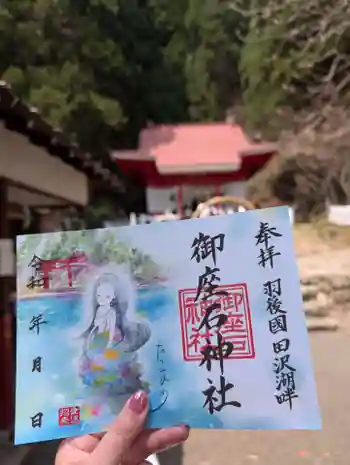 奉拝
羽後国田沢湖畔
御座石神社
御座石神社
たつこ
令和 年 月 日